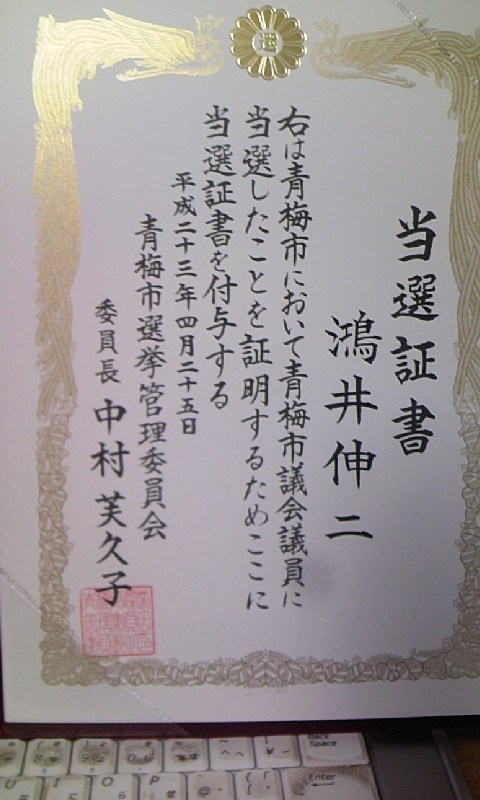 選
当選証書
鴻井伸二
右は青梅市において青梅市議会議員に
当選したことを証明するためここに
当選証書を付与する
平成二十三年四月二十五日
青梅市選挙管理委員会
委員長 中村芙久子
Back Space
Enter
U
I
O
P